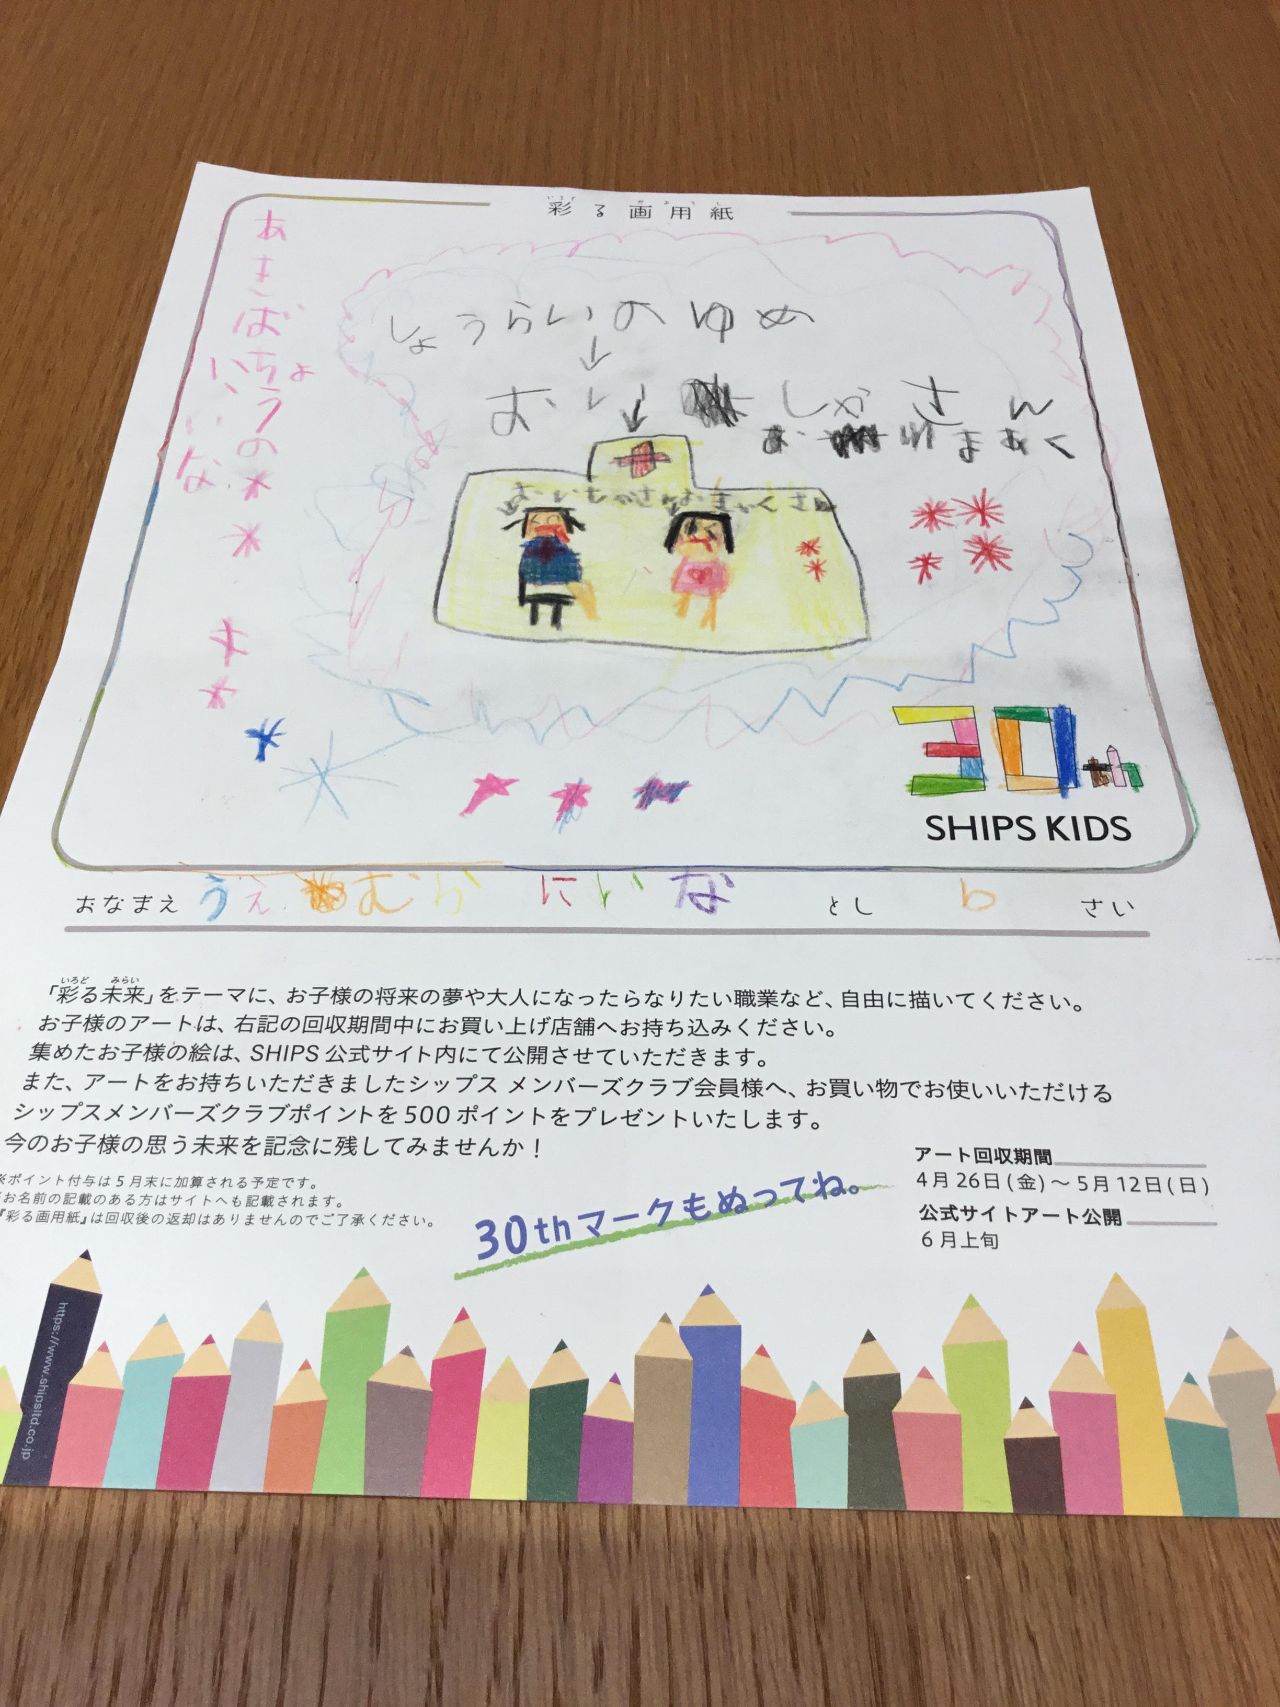 彩る画用紙
しょうらいのゆめ
おいしかさん
30th
SHIPS KIDS
おなまえ うえむら にいな とし 6 さい
「彩る未来」をテーマに、お子様の将来の夢や大人になったらなりたい職業など、自由に描いてください。
お子様のアートは、右記の回収期間中にお買い上げ店舗へお持ち込みください。
集めたお子様の絵は、SHIPS 公式サイト内にて公開させていただきます。
また、アートをお持ちいただきましたシップス メンバーズクラブ会員様へ、お買い物でお使いいただける
シップスメンバーズクラブポイントを 500 ポイントをプレゼントいたします。
今のお子様の思う未来を記念に残してみませんか！
※ポイント付与は 5 月末に加算される予定です。
お名前の記載のある方はサイトへも記載されます。
『彩る画用紙』は回収後の返却はありませんのでご了承ください。
30thマークもぬってね。
アート回収期間
4月26日(金)～5月12日(日)
公式サイトアート公開
6月上旬
https://www.shipsltd.co.jp